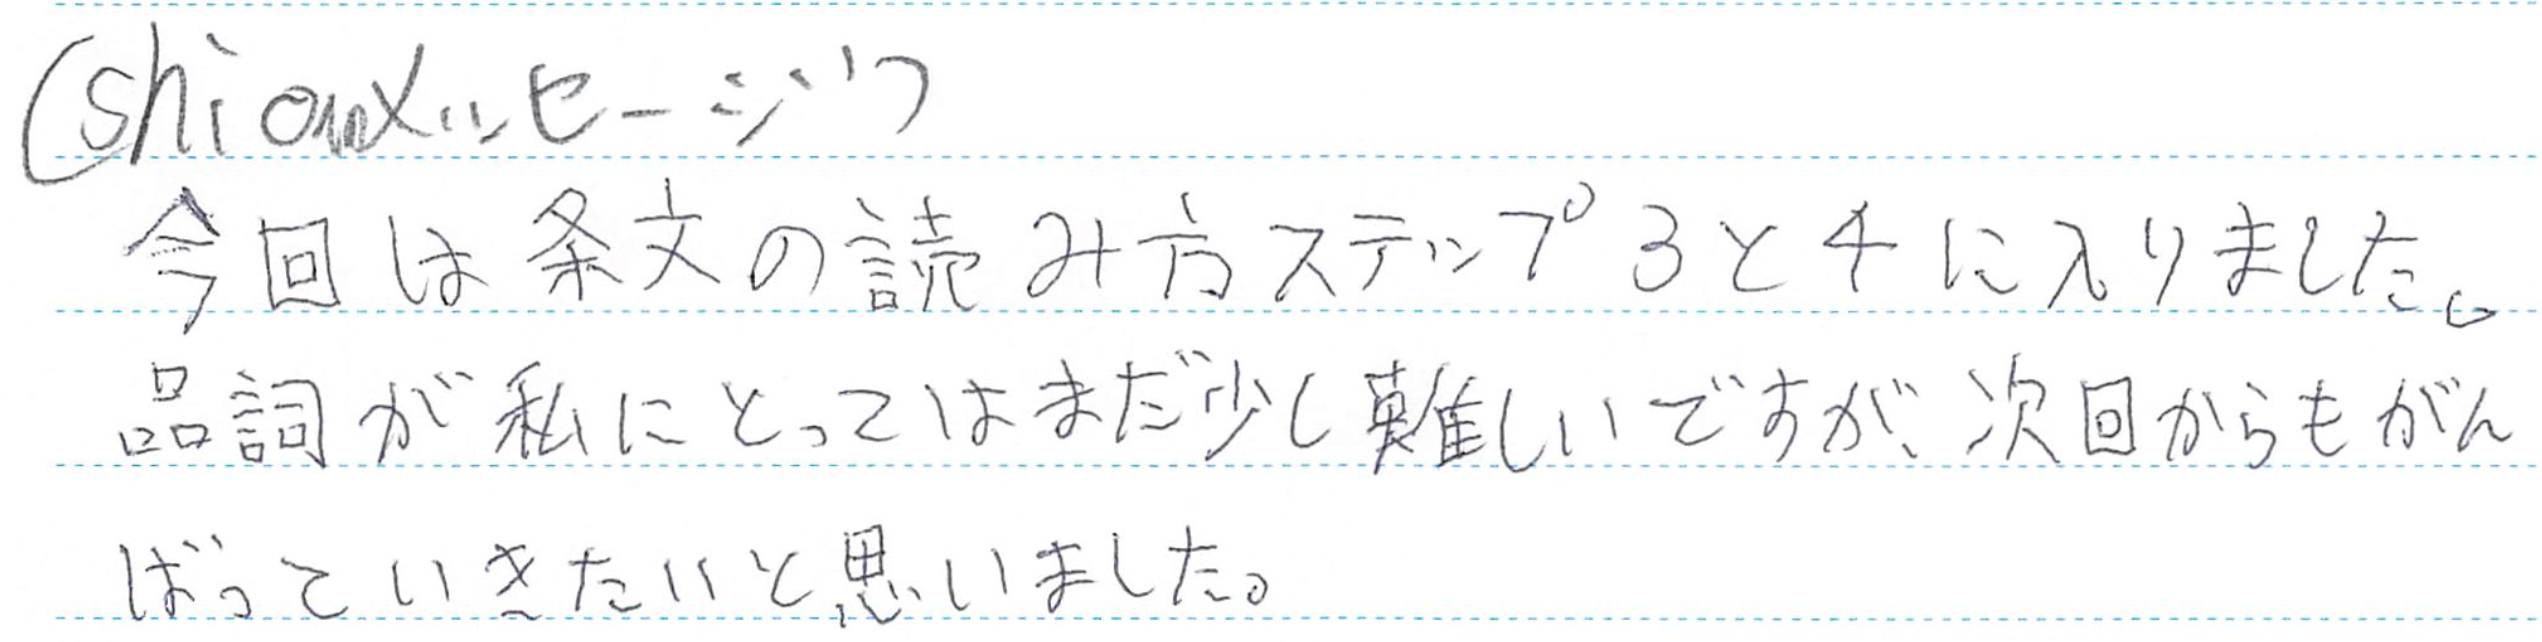 (shionメッセージ)
今回は条文の読み方ステップ3と4に入りました。
品詞が私にとってはまだ少し難しいですが、次回からもがん
ばっていきたいと思いました。